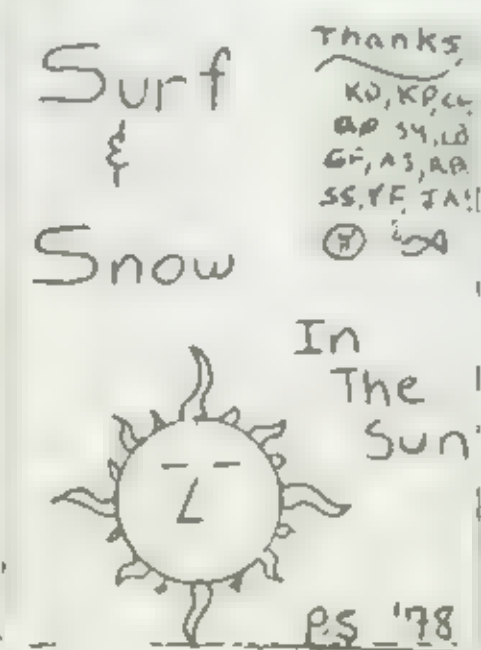 Surf
&
Snow
Thanks
KD, KP,
SY, LD
GF, AS, RB
SS, YF, JA!
In
The
Sun
P.S '78